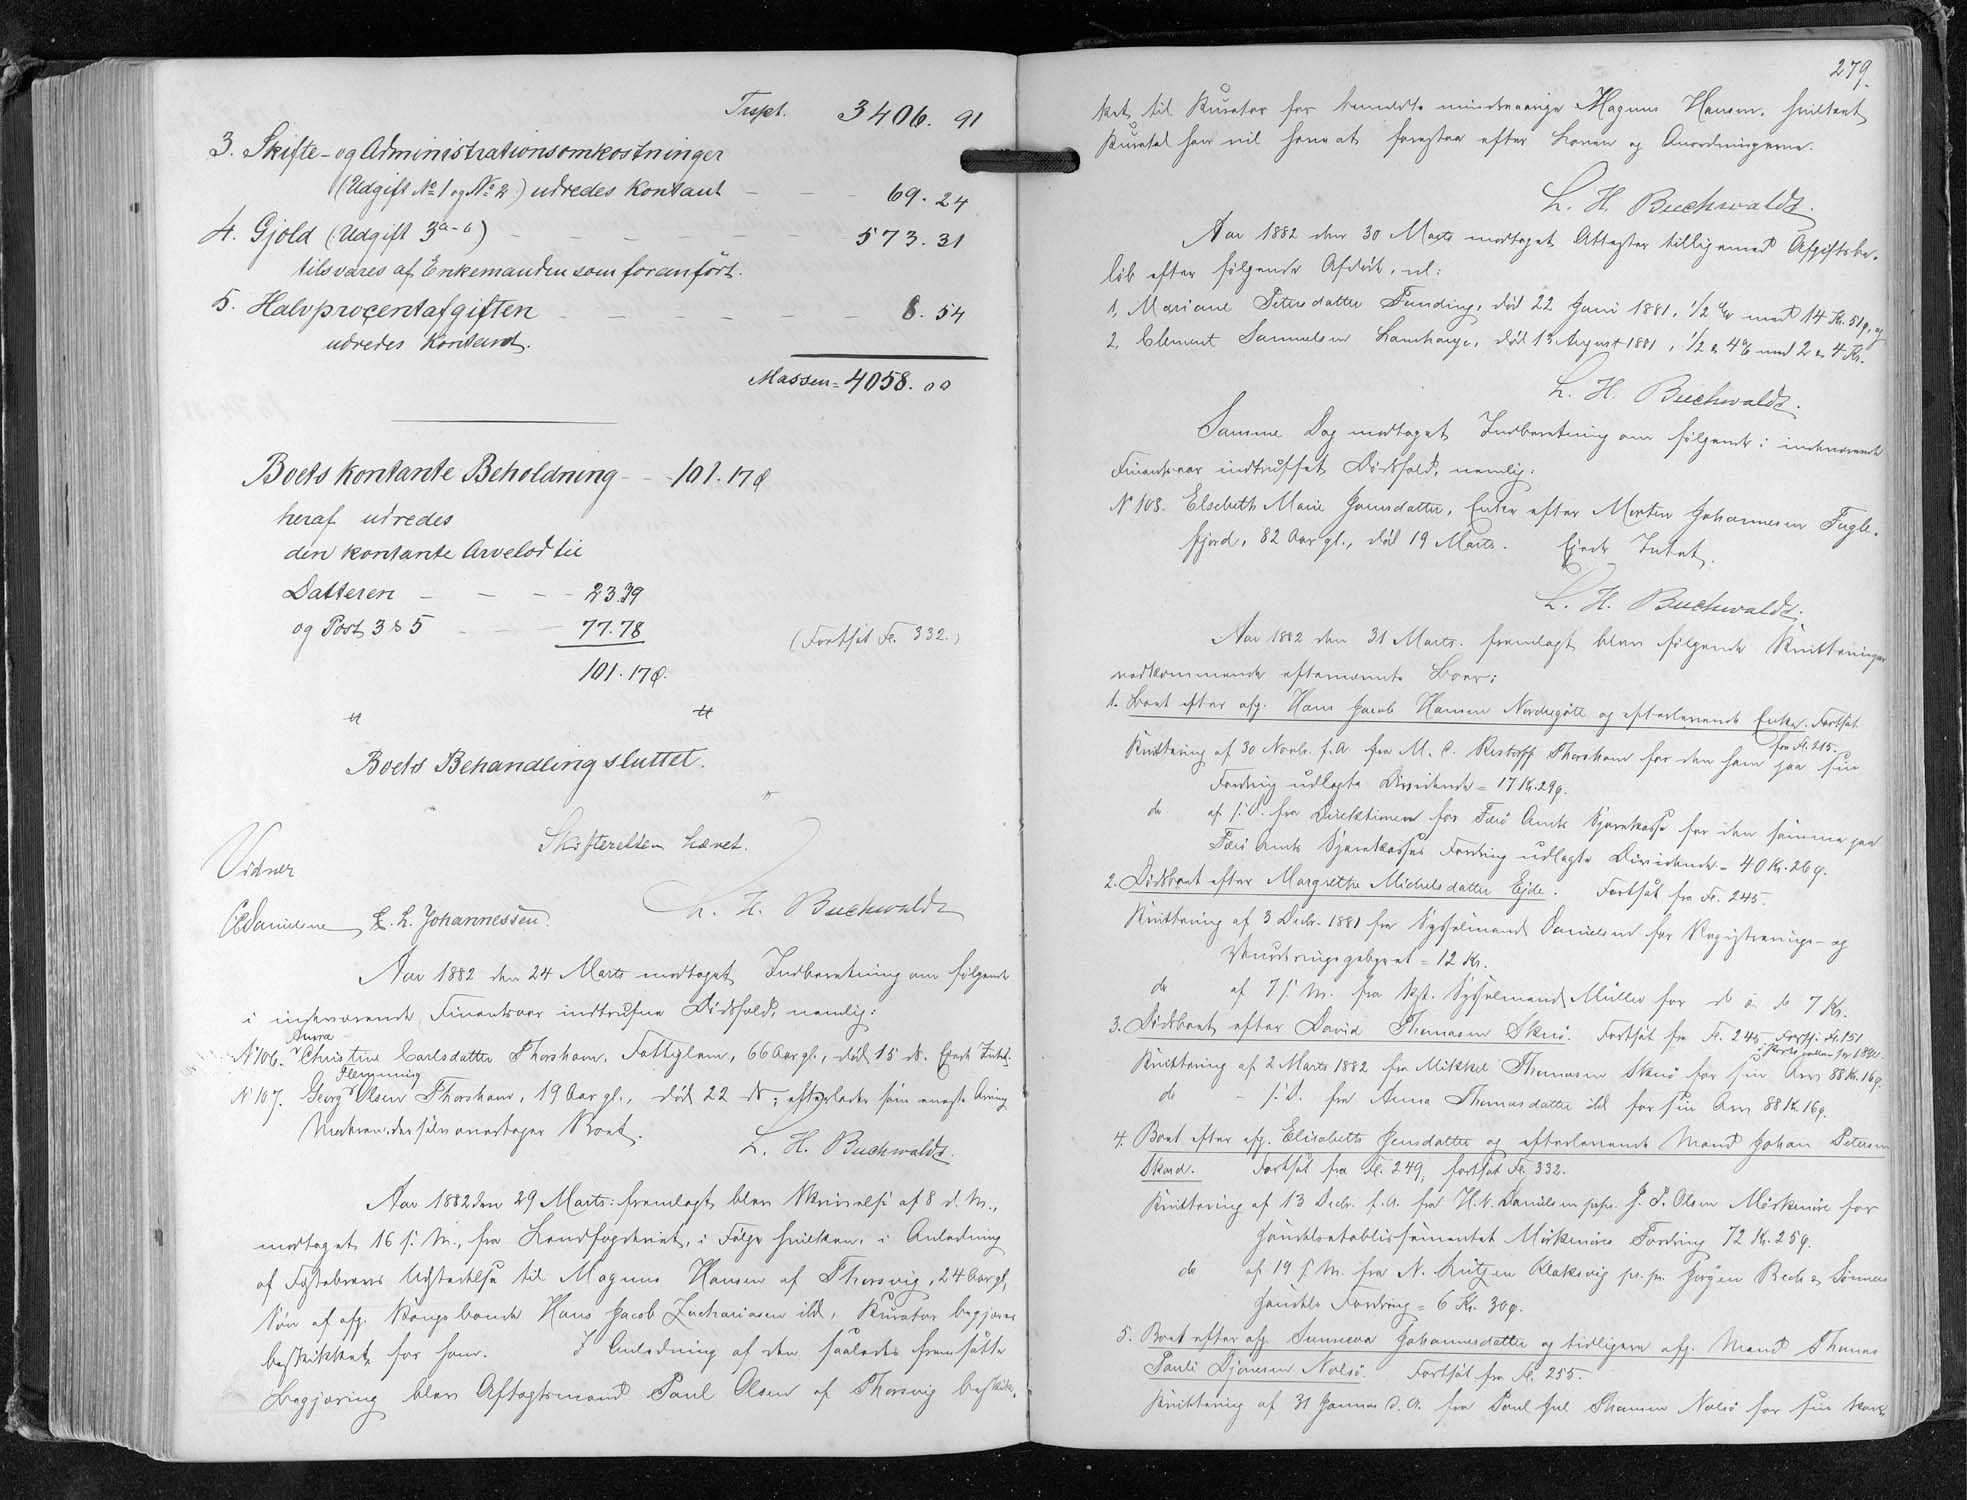 Trspt. 3406. 91
3. Skifte- og Administrationsomkostninger
(Udgift No 1 og No 2) udredes kontant - - - 69. 24
4. Gjold (Udgift 3 a-c) - - - - - - 573. 31
tilsvares af Enkemanden som foranført.
5. Halvprocentafgiften - - - - - - 8. 54
udredes Kontant.
Massen = 4058. 00
Boets kontante Beholdning - - 101. 17 Ø
heraf udredes
den kontante Arvelod til
Datteren - - - - 23.39
og Post 3 & 5 - - - 77.78 (Fortsat Fl. 332.)
101. 17 Ø.
Boets Behandling sluttet.
Skifteretten hævet.
Vidner
L. H. Buchwaldt
Danielsen L. Johannessen.
Aar 1882 den 24 Marts modtaget Indberetning om følgende
i indeværende Finantsaar indtrufne Dødsfald, nemlig:
Anna
No 106. Christine Carlsdatter Thorshavn, Fattiglem, 66 Aar gl., død 15 ds. Ejede Intet.
Flemming
No 107. Georg Olsen Thorshavn, 19 Aar gl., død 22 ds; efterlader som eneste Arving
Moderen, der selv overtager Boet.
L. H. Buchwaldt.
Aar 1882 den 29 Marts: fremlagt blev Skrivelse af 8 d. M.,
modtaget 16 s. M., fra Landfogderiet, i Følge hvilken, i Anledning
af Fæstebrevs Udstedelse til Magnus Hansen af Thorsvig, 24 Aar gl,
Søn af afg. Kongsbonde Hans Jacob Zachariasen ibd, Kurator begjæres
beskikket for ham. I Anledning af den saaledes fremsatte
Begjæring blev Aftagtsmand Poul Olsen af Thorsvig beskik-
279.
ket til Kurator for bemeldte mindreaarige Magnus Hansen, hvilket
Kuratel han vil have at forestaa efter Loven og Anordningerne.
L. H. Buchwaldt.
Aar 1882 den 30 Marts modtaget Attester tilligemed Afgiftsbe-
løb efter følgende Afdøde, nl:
1, Mariane Petersdatter Funding, død 22 Juni 1881, 1/2 % med 14 Kr. 51 ø, og
2, Clement Samuelsen Lamhauge, død 13 August 1881, 1/2 & 4 % med 2 & 4 Kr.
L. H. Buchwaldt.
Samme Dag modtaget Indberetning om følgende i indeværende
Finantsaar indtruffet Dødsfald, nemlig:
No 108. Elsebeth Marie Joensdatter, Enke efter Morten Johannesen Fugle-
fjord, 82 Aar gl., død 19 Marts. Ejede Intet.
L. H. Buchwaldt.
Aar 1882 den 31 Marts. fremlagt blev følgende Kvitteringer
vedkommende efternævnte Boer:
1. Boet efter afg. Hans Jacob Hansen Nordregøte og efterlevende Enke. Fortsat
fra Fl. 215.
Kvittering af 30 Novbr. f. A. fra M. C. Restorff Thorshavn for den ham paa sin
Fordring udlagte Dividende = 17 Kr. 29 ø.
do af s. D. fra Direktionen for Færø Amts Sparekasse for den samme paa
Færø Amts Sparekasses Fordring udlagte Dividende = 40 Kr. 26 ø.
2. Dødsboet efter Margrethe Michelsdatter Ejde. Fortsat fra Fl. 245.
Kvittering af 3 Decbr. 1881 fra Sysselmand Danielsen for Registrerings- og
Vurderingsgebyret = 12 Kr.
do af 7 s. M. fra Kst. Sysselmand Müller for do do 7 Kr.
3. Dødsboet efter David Thomasen Skuø. Fortsat fra Fl. 245. Forts. Fl. 151
Kvittering af 2 Marts 1882 fra Mikkel Thomasen Skuø for sin Arv 88 Kr. 16 ø.
do - s. D. fra Anna Thomasdatter ibd for sin Arv 88 Kr. 16 ø.
4. Boet efter afg. Elisabeth Jensdatter og efterlevende Mand Johan Petersen
Skard. Fortsat fra Fl. 249, fortsat Fl. 332.
Kvittering af 13 Decbr. f. A. fra H. N. Danielsen J. P. Olsen Mørkenøre for
Handelsetablissementet Mørkenøres Fordring 72 Kr. 25 ø.
do af 19 s. M. fra N. Lützen Klaksvig pr. pr. Jørgen Bech & Sønners
Handels Fordring = 6 Kr. 30 ø.
5. Boet efter afg. Sunneva Johannesdatter og tidligere afg. Mand Thomas
Pauli Djonesen Nolsø. Fortsat fra Fl. 255.
Kvittering af 31 Januar d. A. fra Poul Juel Thomsen Nolsø for sin